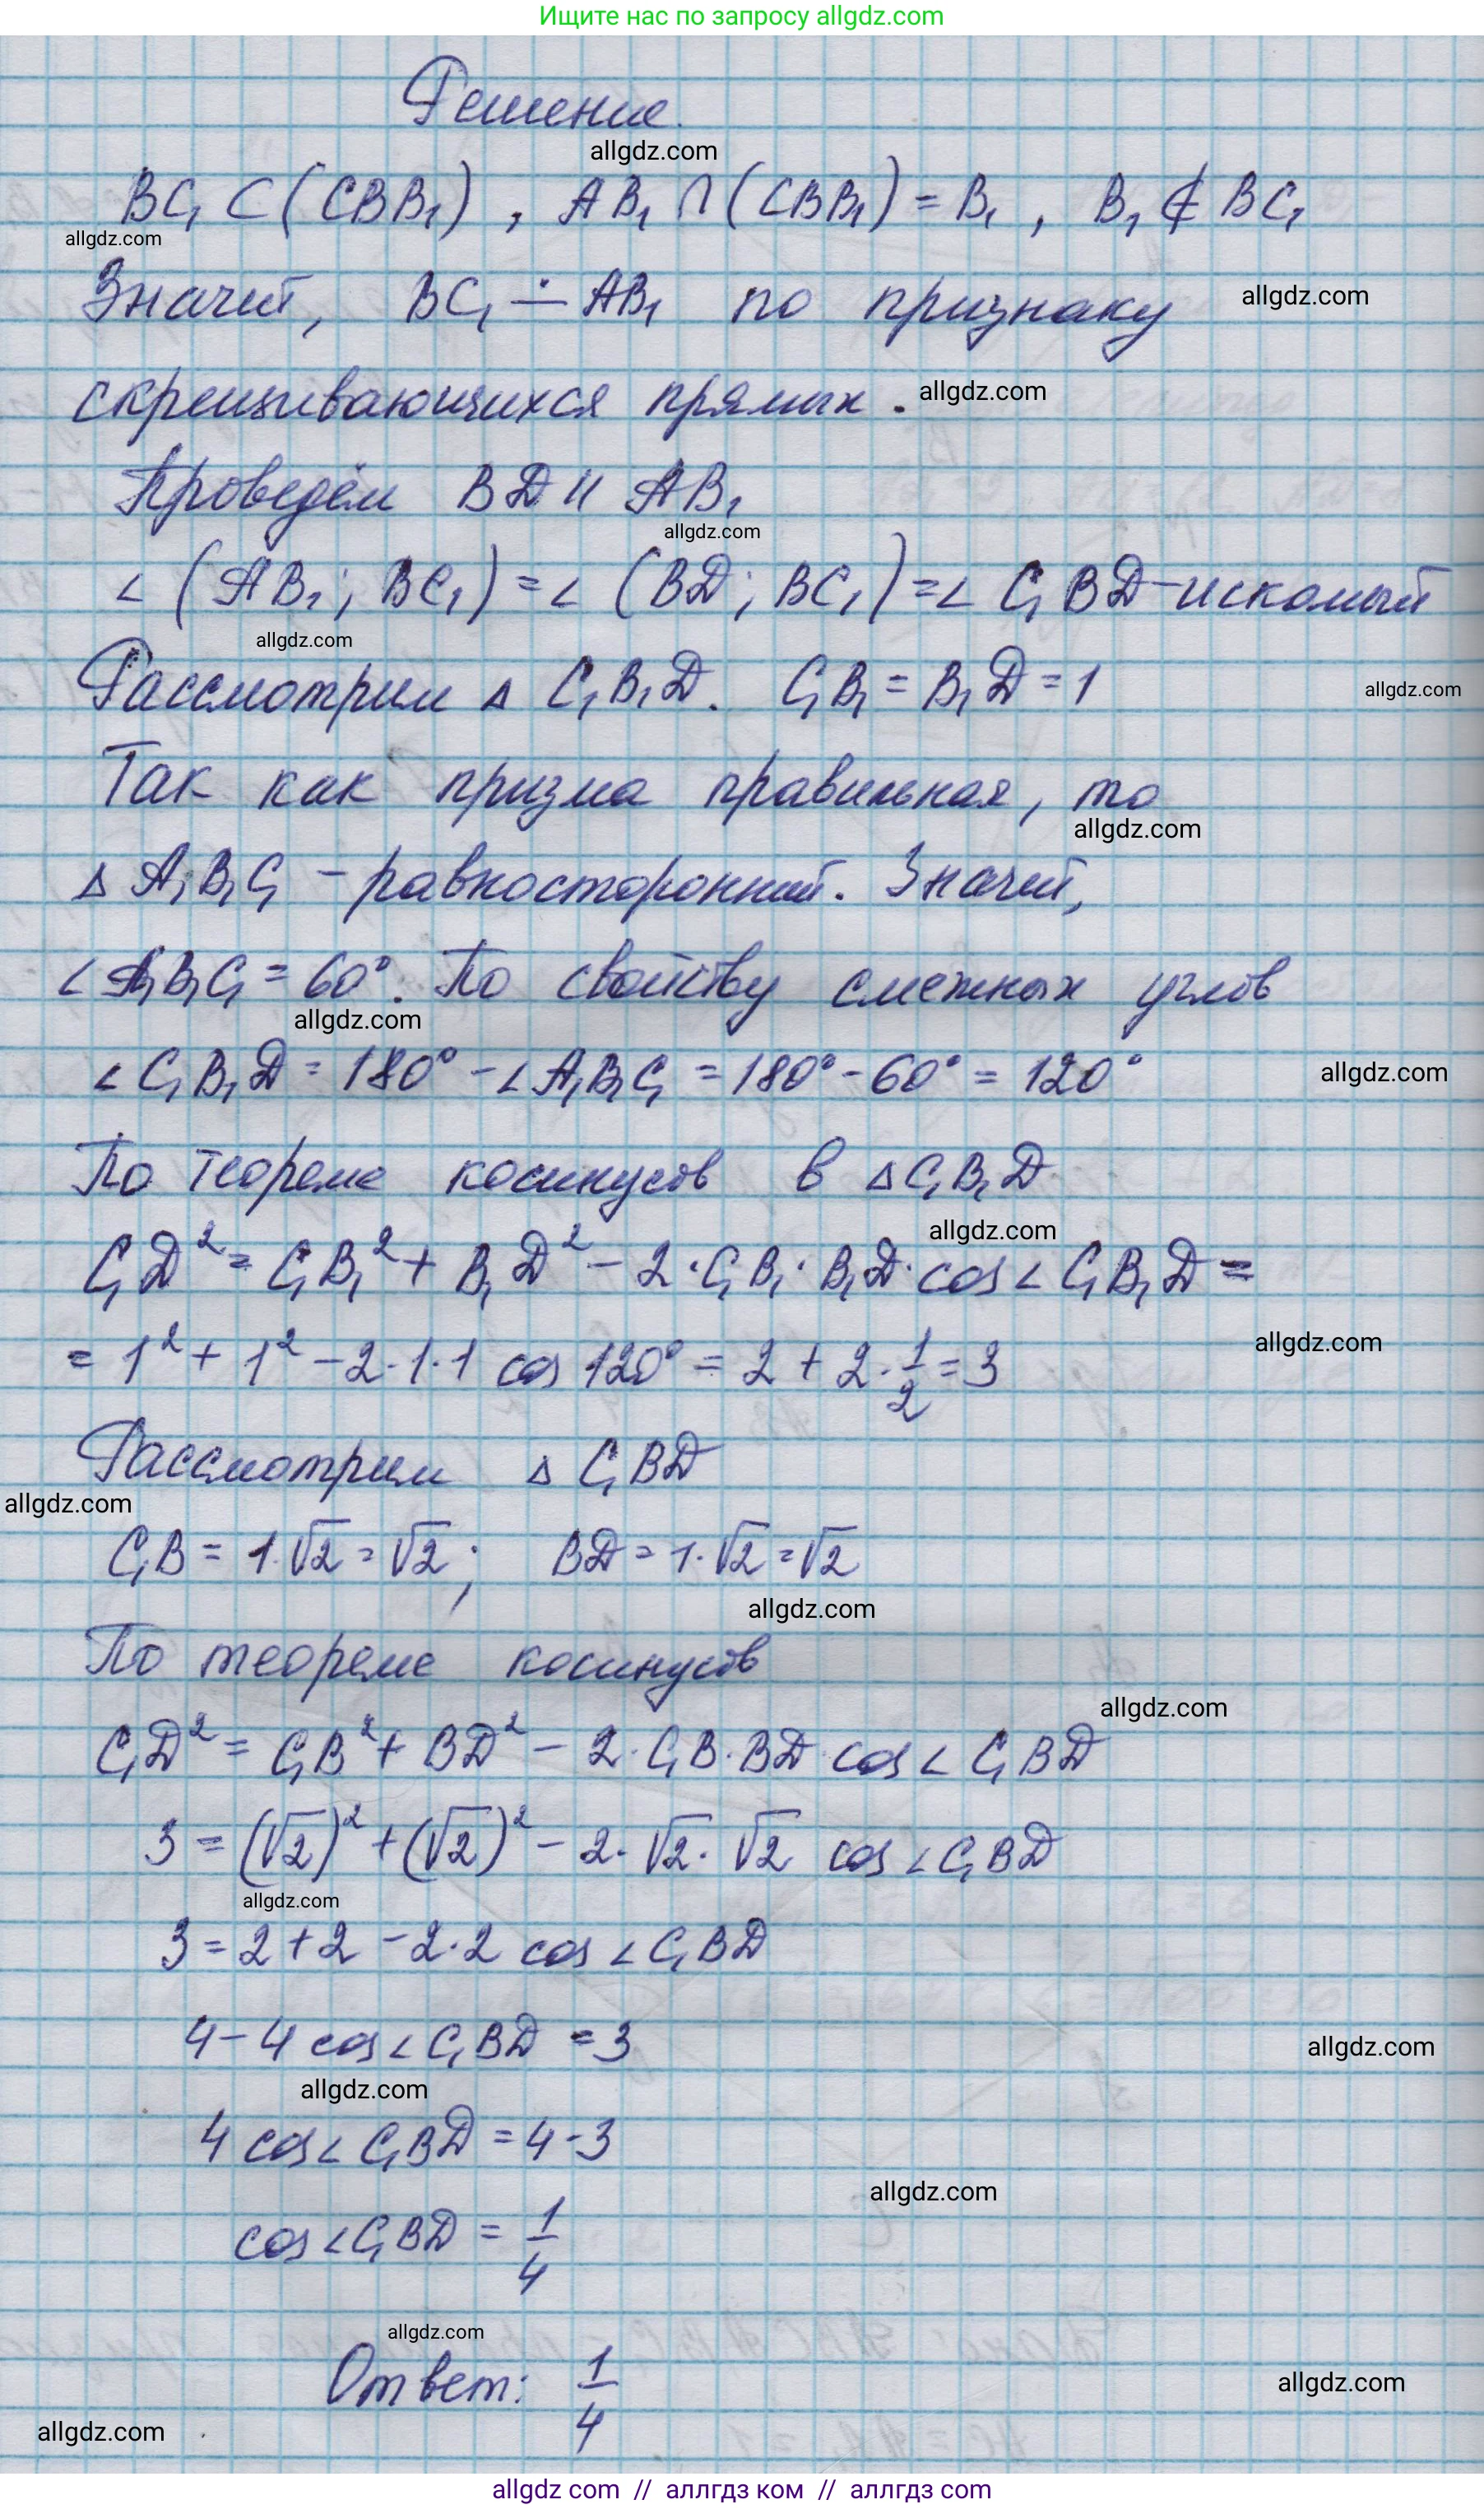 Ищите нас по запросу allgdz.com
Решение.
allgdz.com
BC₁ ⊂ (CBB₁) , AB₁ ∩ (CBB₁) = B₁ , B₁ ∉ BC₁
allgdz.com
Значит, BC₁ ∸ AB₁ по признаку allgdz.com
скрещивающихся прямых . allgdz.com
Проведём BD ıı AB₁
allgdz.com
∠ (AB₁ ; BC₁) = ∠ (BD ; BC₁) = ∠ C₁BD - искомый
allgdz.com
Рассмотрим Δ C₁B₁D. C₁B₁ = B₁D = 1 allgdz.com
Так как призма правильная, то
allgdz.com
Δ A₁B₁C₁ - равносторонний. Значит,
∠ A₁B₁C₁ = 60°. По свойству смежных углов
allgdz.com
∠ C₁B₁D = 180° - ∠ A₁B₁C₁ = 180° - 60° = 120° allgdz.com
По теореме косинусов в Δ C₁B₁D
allgdz.com
C₁D² = C₁B₁² + B₁D² - 2 · C₁B₁ · B₁D · cos ∠ C₁B₁D =
allgdz.com
= 1² + 1² - 2 · 1 · 1 cos 120° = 2 + 2 · 1/2 = 3
Рассмотрим Δ C₁BD
allgdz.com
C₁B = 1 · √2 = √2 ; BD = 1 · √2 = √2
allgdz.com
По теореме косинусов
allgdz.com
C₁D² = C₁B² + BD² - 2 · C₁B · BD cos ∠ C₁BD
3 = (√2)² + (√2)² - 2 · √2 · √2 cos ∠ C₁BD
allgdz.com
3 = 2 + 2 - 2 · 2 cos ∠ C₁BD
4 - 4 cos ∠ C₁BD = 3 allgdz.com
allgdz.com
4 cos ∠ C₁BD = 4 - 3
allgdz.com
cos ∠ C₁BD = 1/4
allgdz.com
Ответ: 1/4
allgdz.com
allgdz.com
allgdz com // аллгдз ком // аллгдз com